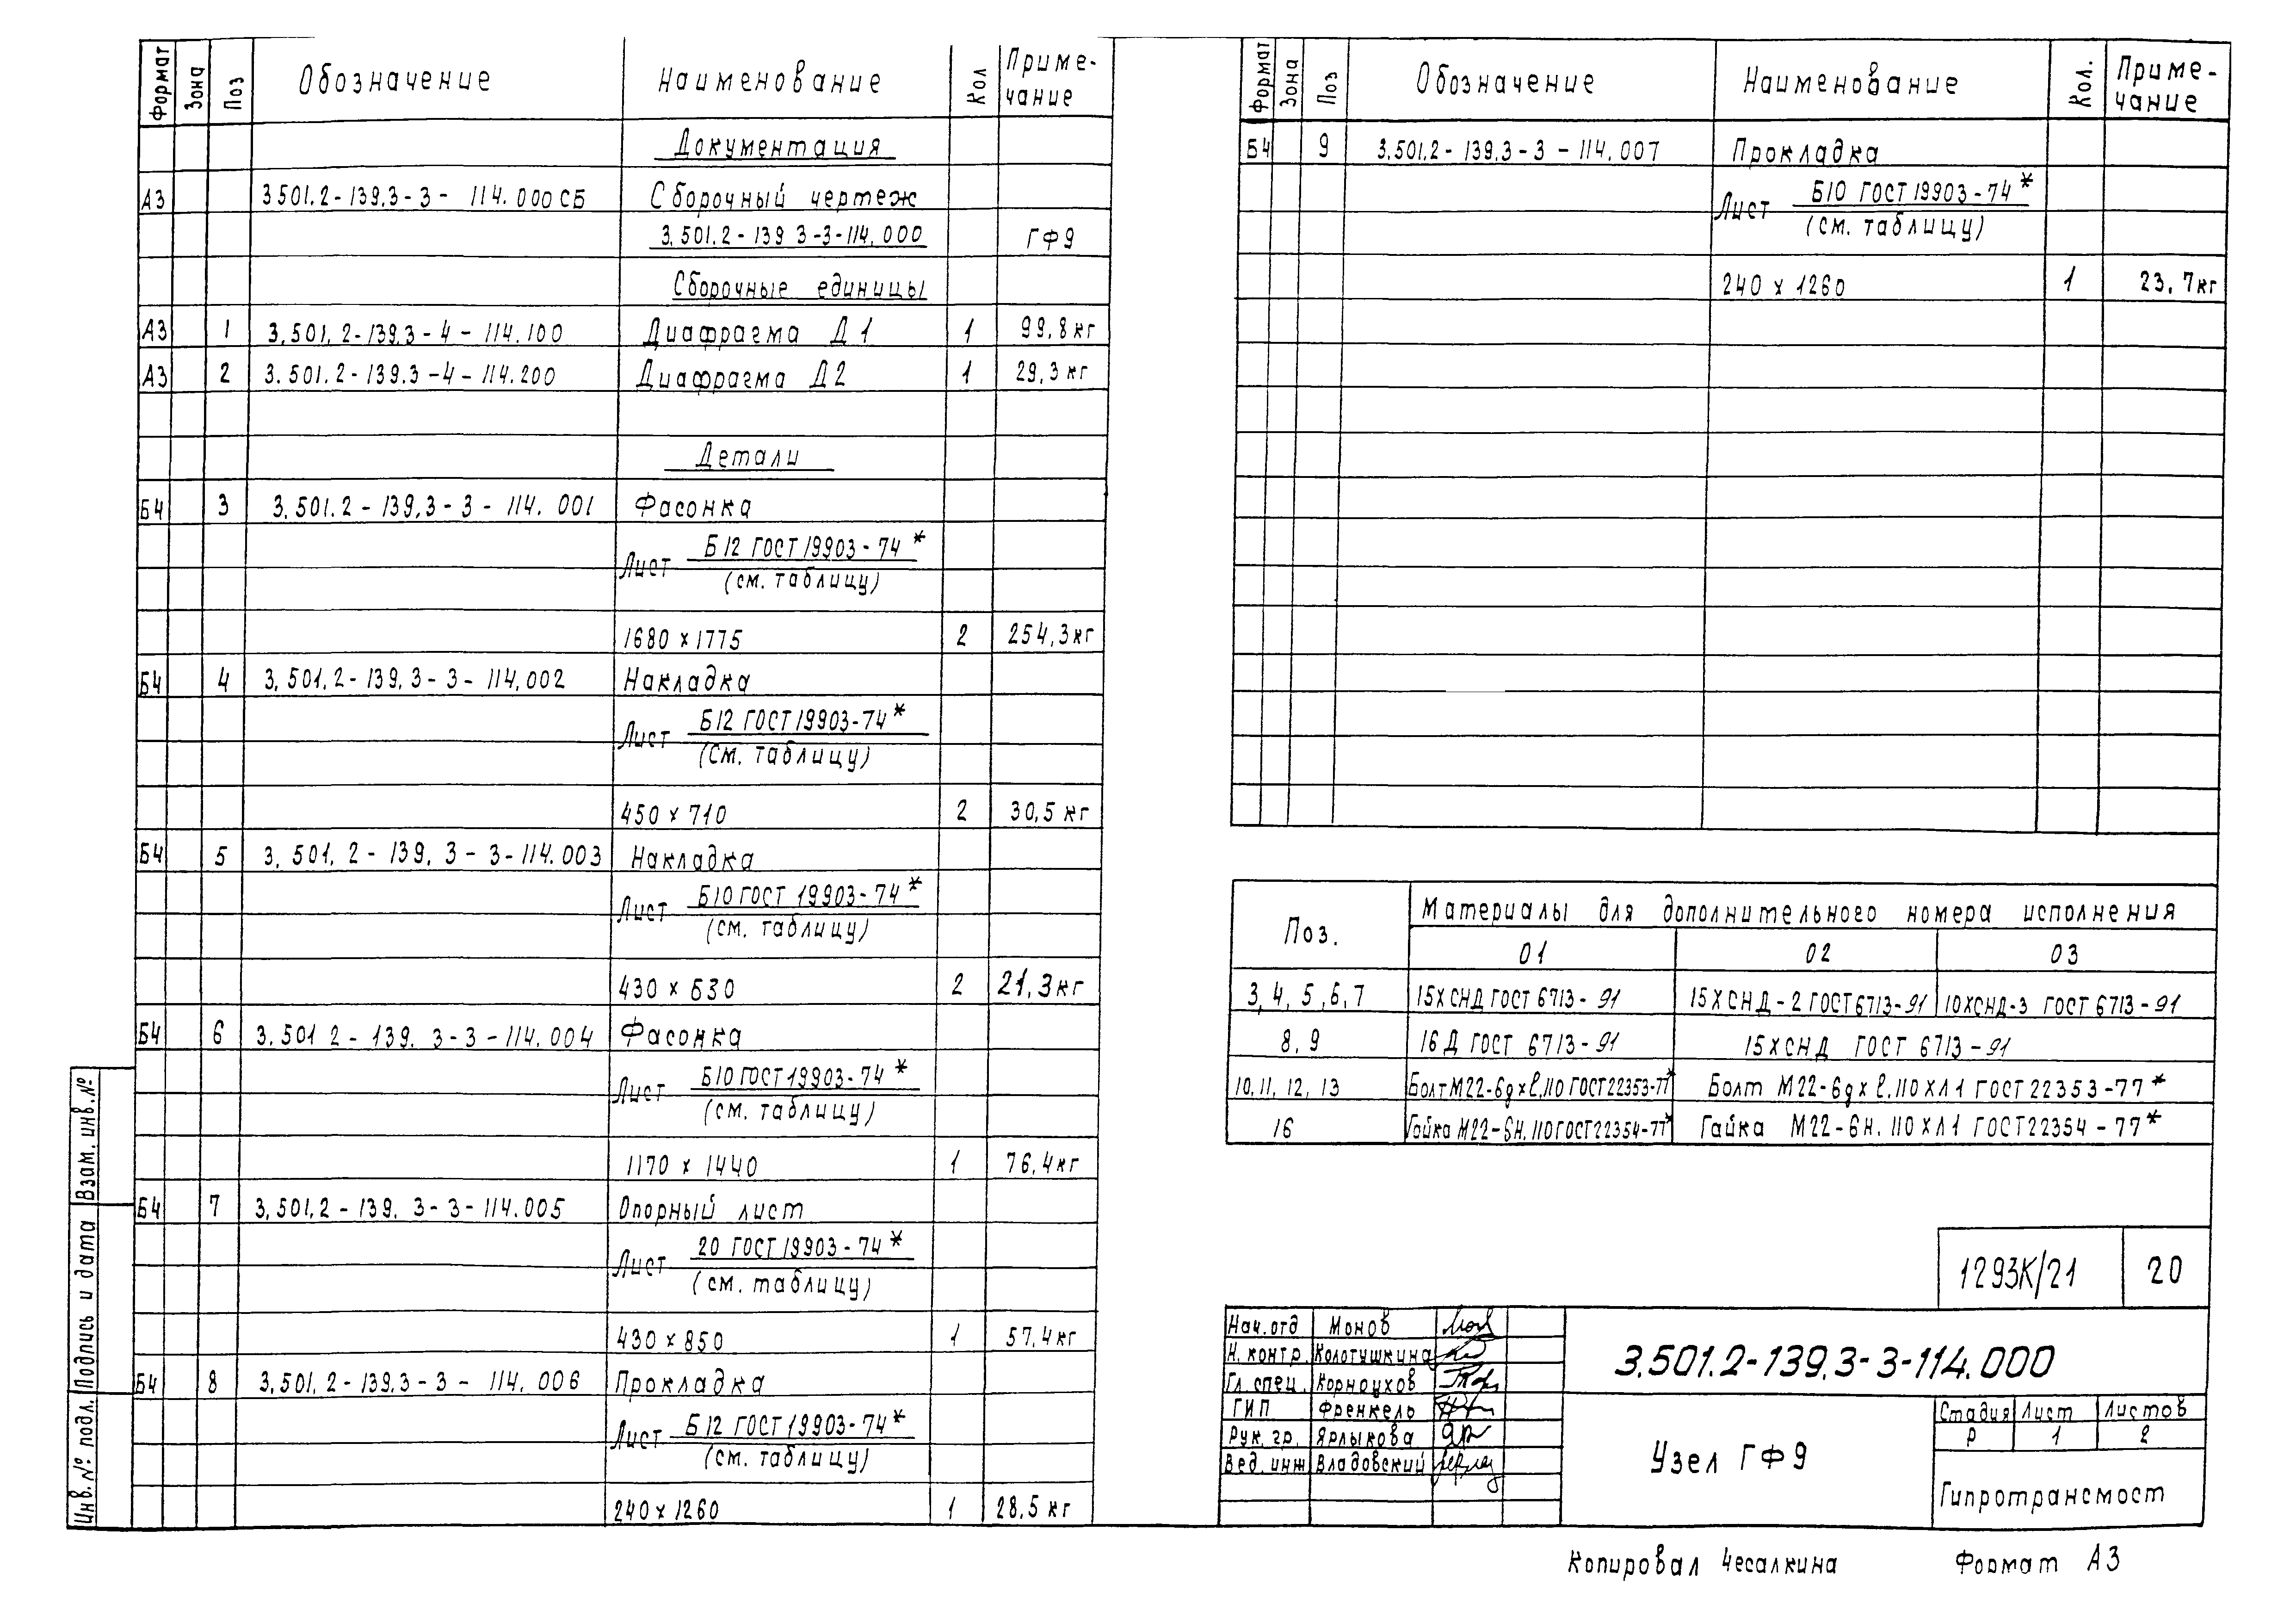 Формат Зона Поз Обозначение Наименование Кол Приме-чание
Документация
А3 3 501.2-139.3-3- 114.000 СБ Сборочный чертеж
3.501.2-139 3-3-114.000 ГФ9
Сборочные единицы
А3 1 3.501.2-139.3-4-114.100 Диафрагма Д1 1 99,8 кг
А3 2 3.501.2-139.3-4-114.200 Диафрагма Д2 1 29,3 кг
Детали
Б4 3 3.501.2-139.3-3-114.001 Фасонка
Лист Б12 ГОСТ 19903-74*
(см. таблицу)
1680 х 1775 2 254,3 кг
Б4 4 3.501.2-139.3-3-114.002 Накладка
Лист Б12 ГОСТ 19903-74*
(см. таблицу)
450 х 710 2 30,5 кг
Б4 5 3.501.2-139.3-3-114.003 Накладка
Лист Б10 ГОСТ 19903-74*
(см. таблицу)
430 х 630 2 21,3 кг
Б4 6 3.501 2-139.3-3-114.004 Фасонка
Лист Б10 ГОСТ 19903-74*
(см. таблицу)
1170 х 1440 1 76,4 кг
Б4 7 3.501.2-139.3-3-114.005 Опорный лист
Лист 20 ГОСТ 19903-74*
(см. таблицу)
430 х 850 1 57,4 кг
Б4 8 3.501.2-139.3-3-114.006 Прокладка
Лист Б12 ГОСТ 19903-74*
(см. таблицу)
240 х 1260 1 28,5 кг
Взам. инв. №
Подпись и дата
Инв. № подл.
Формат Зона Поз Обозначение Наименование Кол. Приме-чание
Б4 9 3.501.2-139.3-3-114.007 Прокладка
Лист Б10 ГОСТ 19903-74*
(см. таблицу)
240 х 1260 1 23,7 кг
Поз. Материалы для дополнительного номера исполнения
01 02 03
3, 4, 5, 6, 7 15ХСНД ГОСТ 6713-91 15ХСНД-2 ГОСТ 6713-91 10ХСНД-3 ГОСТ 6713-91
8, 9 16Д ГОСТ 6713-91 15ХСНД ГОСТ 6713-91
10, 11, 12, 13 Болт М22-6gхl.110 ГОСТ 22353-77* Болт М22-6gхl.110ХЛ1 ГОСТ 22353-77*
16 Гайка М22-6Н.110 ГОСТ 22354-77* Гайка М22-6Н.110ХЛ1 ГОСТ 22354-77*
1293К/21 20
Нач. отд Монов
Н. контр. Колотушкина
Гл. спец. Корноухов
ГИП Френкель
Рук. гр. Ярлыкова
Вед. инж Владовский
3.501.2-139.3-3-114.000
Узел ГФ9
Стадия Лист Листов
Р 1 2
Гипротрансмост
Копировал Чесалкина Формат А3